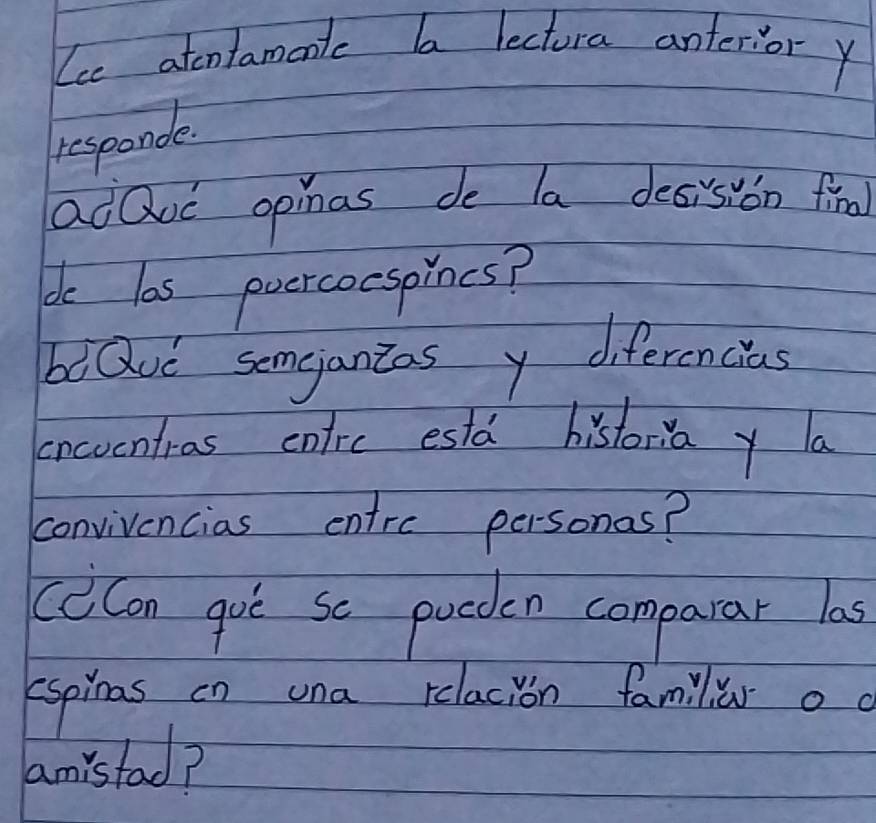 Lee atentamente la lectura anterior y
responde.
a¿Qué opinas de la desisión final
de los puercoespines?
b¿Qué semejanzas y diferencias
encuentras entre está historia y la
convivencias entre personas?
C¿Con qué se pueden comparar las
espinas en una relación familiar o d
amistad?